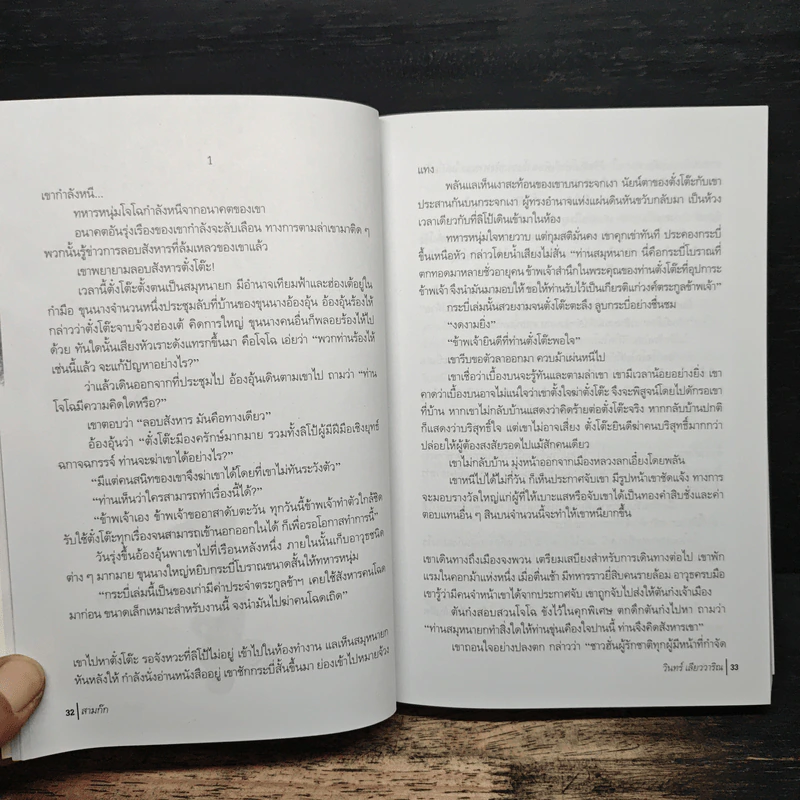 1
เขากำลังหนี...
ทหารหนุ่มโจโฉกำลังหนีจากอนาคตของเขา
อนาคตอันรุ่งเรืองของเขากำลังจะลับเลือน ทางการตามล่าเขามาติด ๆ
พวกนั้นรู้ข่าวการลอบสังหารที่ล้มเหลวของเขาแล้ว
เขาพยายามลอบสังหารตั๋งโต๊ะ!
เวลานี้ตั๋งโต๊ะตั้งตนเป็นสมุหนายก มีอำนาจเทียมฟ้าและฮ่องเต้อยู่ใน
กำมือ ขุนนางจำนวนหนึ่งประชุมลับที่บ้านของขุนนางอ้องอุ้น อ้องอุ้นร้องไห้
กล่าวว่าตั๋งโต๊ะจาบจ้วงฮ่องเต้ คิดการใหญ่ ขุนนางคนอื่นก็พลอยร้องไห้ไป
ด้วย ทันใดนั้นเสียงหัวเราะดังแทรกขึ้นมา คือโจโฉ เอ่ยว่า “พวกท่านร้องไห้
เช่นนี้แล้ว จะแก้ปัญหาอย่างไร?”
ว่าแล้วเดินออกจากที่ประชุมไป อ้องอุ้นเดินตามเขาไป ถามว่า “ท่าน
โจโฉมีความคิดใดหรือ?”
เขาตอบว่า “ลอบสังหาร มันคือทางเดียว”
อ้องอุ้นว่า “ตั๋งโต๊ะมีองครักษ์มากมาย รวมทั้งลิโป้ผู้มีฝีมือเชิงยุทธ์
ฉกาจฉกรรจ์ ท่านจะฆ่าเขาได้อย่างไร?”
“มีแต่คนสนิทของเขาจึงฆ่าเขาได้โดยที่เขาไม่ทันระวังตัว”
“ท่านเห็นว่าใครสามารถทำเรื่องนี้ได้?”
“ข้าพเจ้าเอง ข้าพเจ้าขออาสาดับตะวัน ทุกวันนี้ข้าพเจ้าทำตัวใกล้ชิด
รับใช้ตั๋งโต๊ะทุกเรื่องจนสามารถเข้านอกออกในได้ ก็เพื่อรอโอกาสทำการนี้”
วันรุ่งขึ้นอ้องอุ้นพาเขาไปที่เรือนหลังหนึ่ง ภายในนั้นเก็บอาวุธชนิด
ต่าง ๆ มากมาย ขุนนางใหญ่หยิบกระบี่โบราณขนาดสั้นให้ทหารหนุ่ม
“กระบี่เล่มนี้เป็นของเก่ามีค่าประจำตระกูลข้าฯ เคยใช้สังหารคนโฉด
มาก่อน ขนาดเล็กเหมาะสำหรับงานนี้ จงนำมันไปฆ่าคนโฉดเถิด”
เขาไปหาตั๋งโต๊ะ รอจังหวะที่ลิโป้ไม่อยู่ เข้าไปในห้องทำงาน แลเห็นสมุหนายก
หันหลังให้ กำลังนั่งอ่านหนังสืออยู่ เขาชักกระบี่สั้นขึ้นมา ย่องเข้าไปหมายจ้วง
32 | สามก๊ก
แทง
พลันแลเห็นเงาสะท้อนของเขาบนกระจกเงา นัยน์ตาของตั๋งโต๊ะกับเขา
ประสานกันบนกระจกเงา ผู้ทรงอำนาจแห่งแผ่นดินหันขวับกลับมา เป็นห้วง
เวลาเดียวกับที่ลิโป้เดินเข้ามาในห้อง
ทหารหนุ่มใจหายวาบ แต่กุมสติมั่นคง เขาคุกเข่าทันที ประคองกระบี่
ขึ้นเหนือหัว กล่าวโดยน้ำเสียงไม่สั่น “ท่านสมุหนายก นี่คือกระบี่โบราณที่
ตกทอดมาหลายชั่วอายุคน ข้าพเจ้าสำนึกในพระคุณของท่านตั๋งโต๊ะที่อุปการะ
ข้าพเจ้า จึงนำมันมามอบให้ ขอให้ท่านรับไว้เป็นเกียรติแก่วงศ์ตระกูลข้าพเจ้า”
กระบี่เล่มนั้นสวยงามจนตั๋งโต๊ะตะลึง ลูบกระบี่อย่างชื่นชม
“งดงามยิ่ง”
“ข้าพเจ้ายินดีที่ท่านตั๋งโต๊ะพอใจ”
เขารีบขอตัวลาออกมา ควบม้าเผ่นหนีไป
เขาเชื่อว่าเบื้องบนจะรู้ทันและตามล่าเขา เขามีเวลาน้อยอย่างยิ่ง เขา
คาดว่าเบื้องบนอาจไม่แน่ใจว่าเขาตั้งใจฆ่าตั๋งโต๊ะ จึงจะพิสูจน์โดยไปดักรอเขา
ที่บ้าน หากเขาไม่กลับบ้านแสดงว่าคิดร้ายต่อตั๋งโต๊ะจริง หากกลับบ้านปกติ
ก็แสดงว่าบริสุทธิ์ใจ แต่เขาไม่อาจเสี่ยง ตั๋งโต๊ะยินดีฆ่าคนบริสุทธิ์มากกว่า
ปล่อยให้ผู้ต้องสงสัยรอดไปแม้สักคนเดียว
เขาไม่กลับบ้าน มุ่งหน้าออกจากเมืองหลวงลกเอี๋ยงโดยพลัน
เขาหนีไปได้ไม่กี่วัน ก็เห็นประกาศจับเขา มีรูปหน้าเขาชัดแจ้ง ทางการ
จะมอบรางวัลใหญ่แก่ผู้ที่ให้เบาะแสหรือจับเขาได้เป็นทองคำสิบชั่งและค่า
ตอบแทนอื่น ๆ สินบนจำนวนนี้จะทำให้เขาหนียากขึ้น
เขาเดินทางถึงเมืองจงพวน เตรียมเสบียงสำหรับการเดินทางต่อไป เขาพัก
แรมในคอกม้าแห่งหนึ่ง เมื่อตื่นเช้า มีทหารราวยี่สิบคนรายล้อม อาวุธครบมือ
เขารู้ว่ามีคนจำหน้าเขาได้จากประกาศจับ เขาถูกจับไปส่งให้ตันก๋งเจ้าเมือง
ตันก๋งสอบสวนโจโฉ ขังไว้ในคุกพิเศษ ตกดึกตันก๋งไปหา ถามว่า
“ท่านสมุหนายกทำสิ่งใดให้ท่านขุ่นเคืองใจปานนี้ ท่านจึงคิดสังหารเขา”
เขาถอนใจอย่างปลงตก กล่าวว่า “ชาวฮั่นผู้รักชาติทุกผู้มีหน้าที่กำจัด
วินทร์ เลียววาริณ | 33